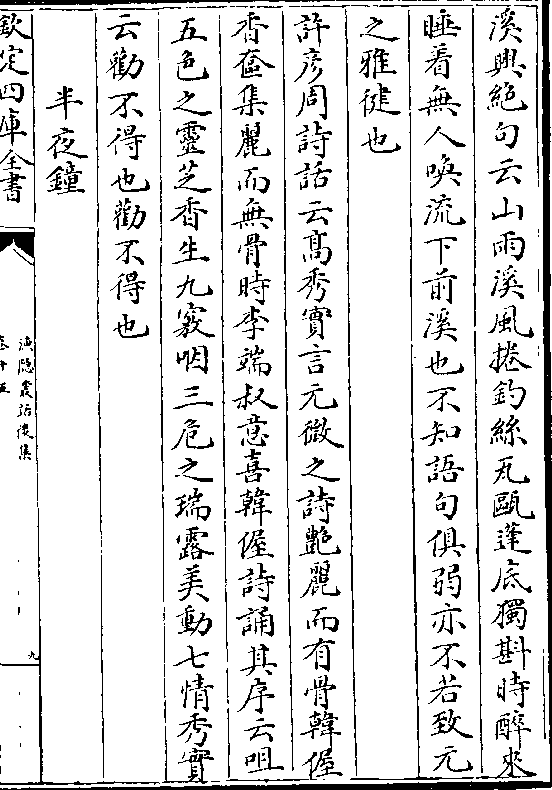 溪興絕句云山雨溪風捲釣絲瓦甌蓬底獨斟時醉來
睡着無人喚流下前溪也不知語句俱弱亦不若致元
之雅健也
許彥周詩話云髙秀實言元微之詩艶麗而有骨韓偓
香奩集麗而無骨時李端叔意喜韓偓詩誦其序云咀
五色之靈芝香生九竅咽三危之瑞露美動七情秀實
云勸不得也勸不得也
半夜鐘
欽定四庫全書
漁隱叢話後集
卷十五
九